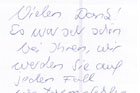 Vielen Dank!
Es war sehr schön
bei Ihnen, wir
werden Sie auf
jeden Fall